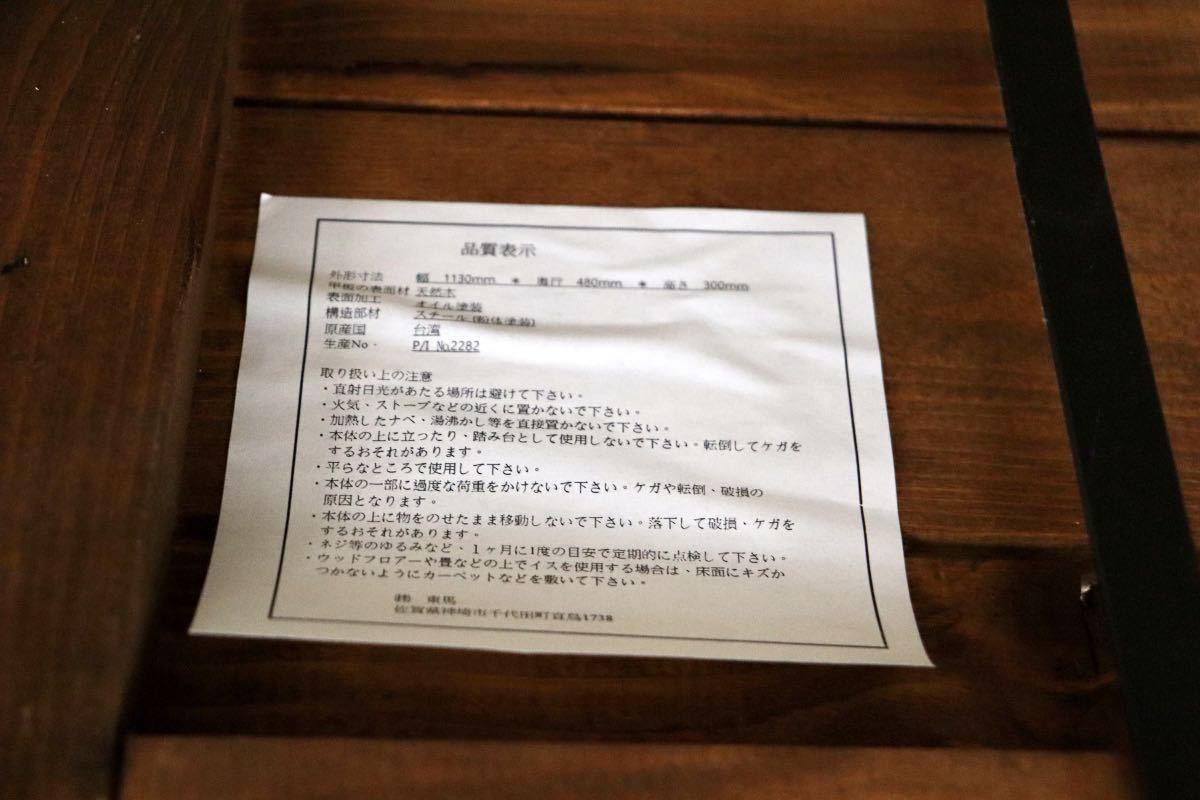 品質表示
外形寸法 幅 1130mm * 奥行 480mm * 高さ 300mm
甲板の表面材 天然木
表面加工 オイル塗装
構造部材 スチール(粉体塗装)
原産国 台湾
生産No・ P/I No.2282
取り扱い上の注意
・直射日光があたる場所は避けて下さい。
・火気、ストーブなどの近くに置かないで下さい。
・加熱したナベ、湯沸かし等を直接置かないで下さい。
・本体の上に立ったり、踏み台として使用しないで下さい。転倒してケガを
するおそれがあります。
・平らなところで使用して下さい。
・本体の一部に過度な荷重をかけないで下さい。ケガや転倒、破損の
原因となります。
・本体の上に物をのせたまま移動しないで下さい。落下して破損・ケガを
するおそれがあります。
・ネジ等のゆるみなど、1ヶ月に1度の目安で定期的に点検して下さい。
・ウッドフロアーや畳などの上でイスを使用する場合は、床面にキズか
つかないようにカーペットなどを敷いて下さい。
㈱ 東馬
佐賀県神埼市千代田町直鳥1738